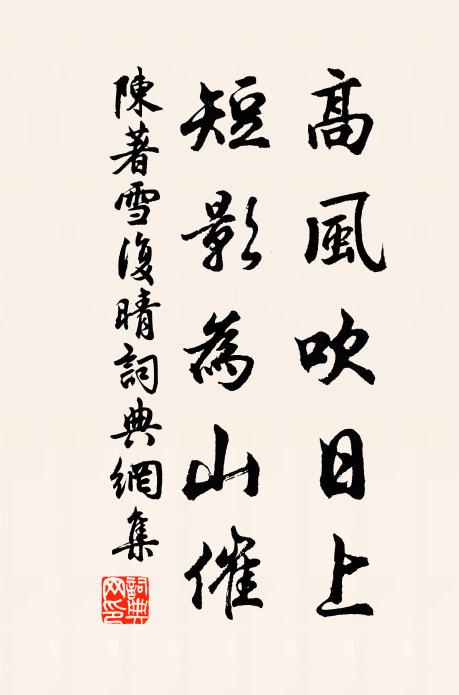 高風吹日上
短影為山催
陳著雪復晴詞典網集
詞典網印